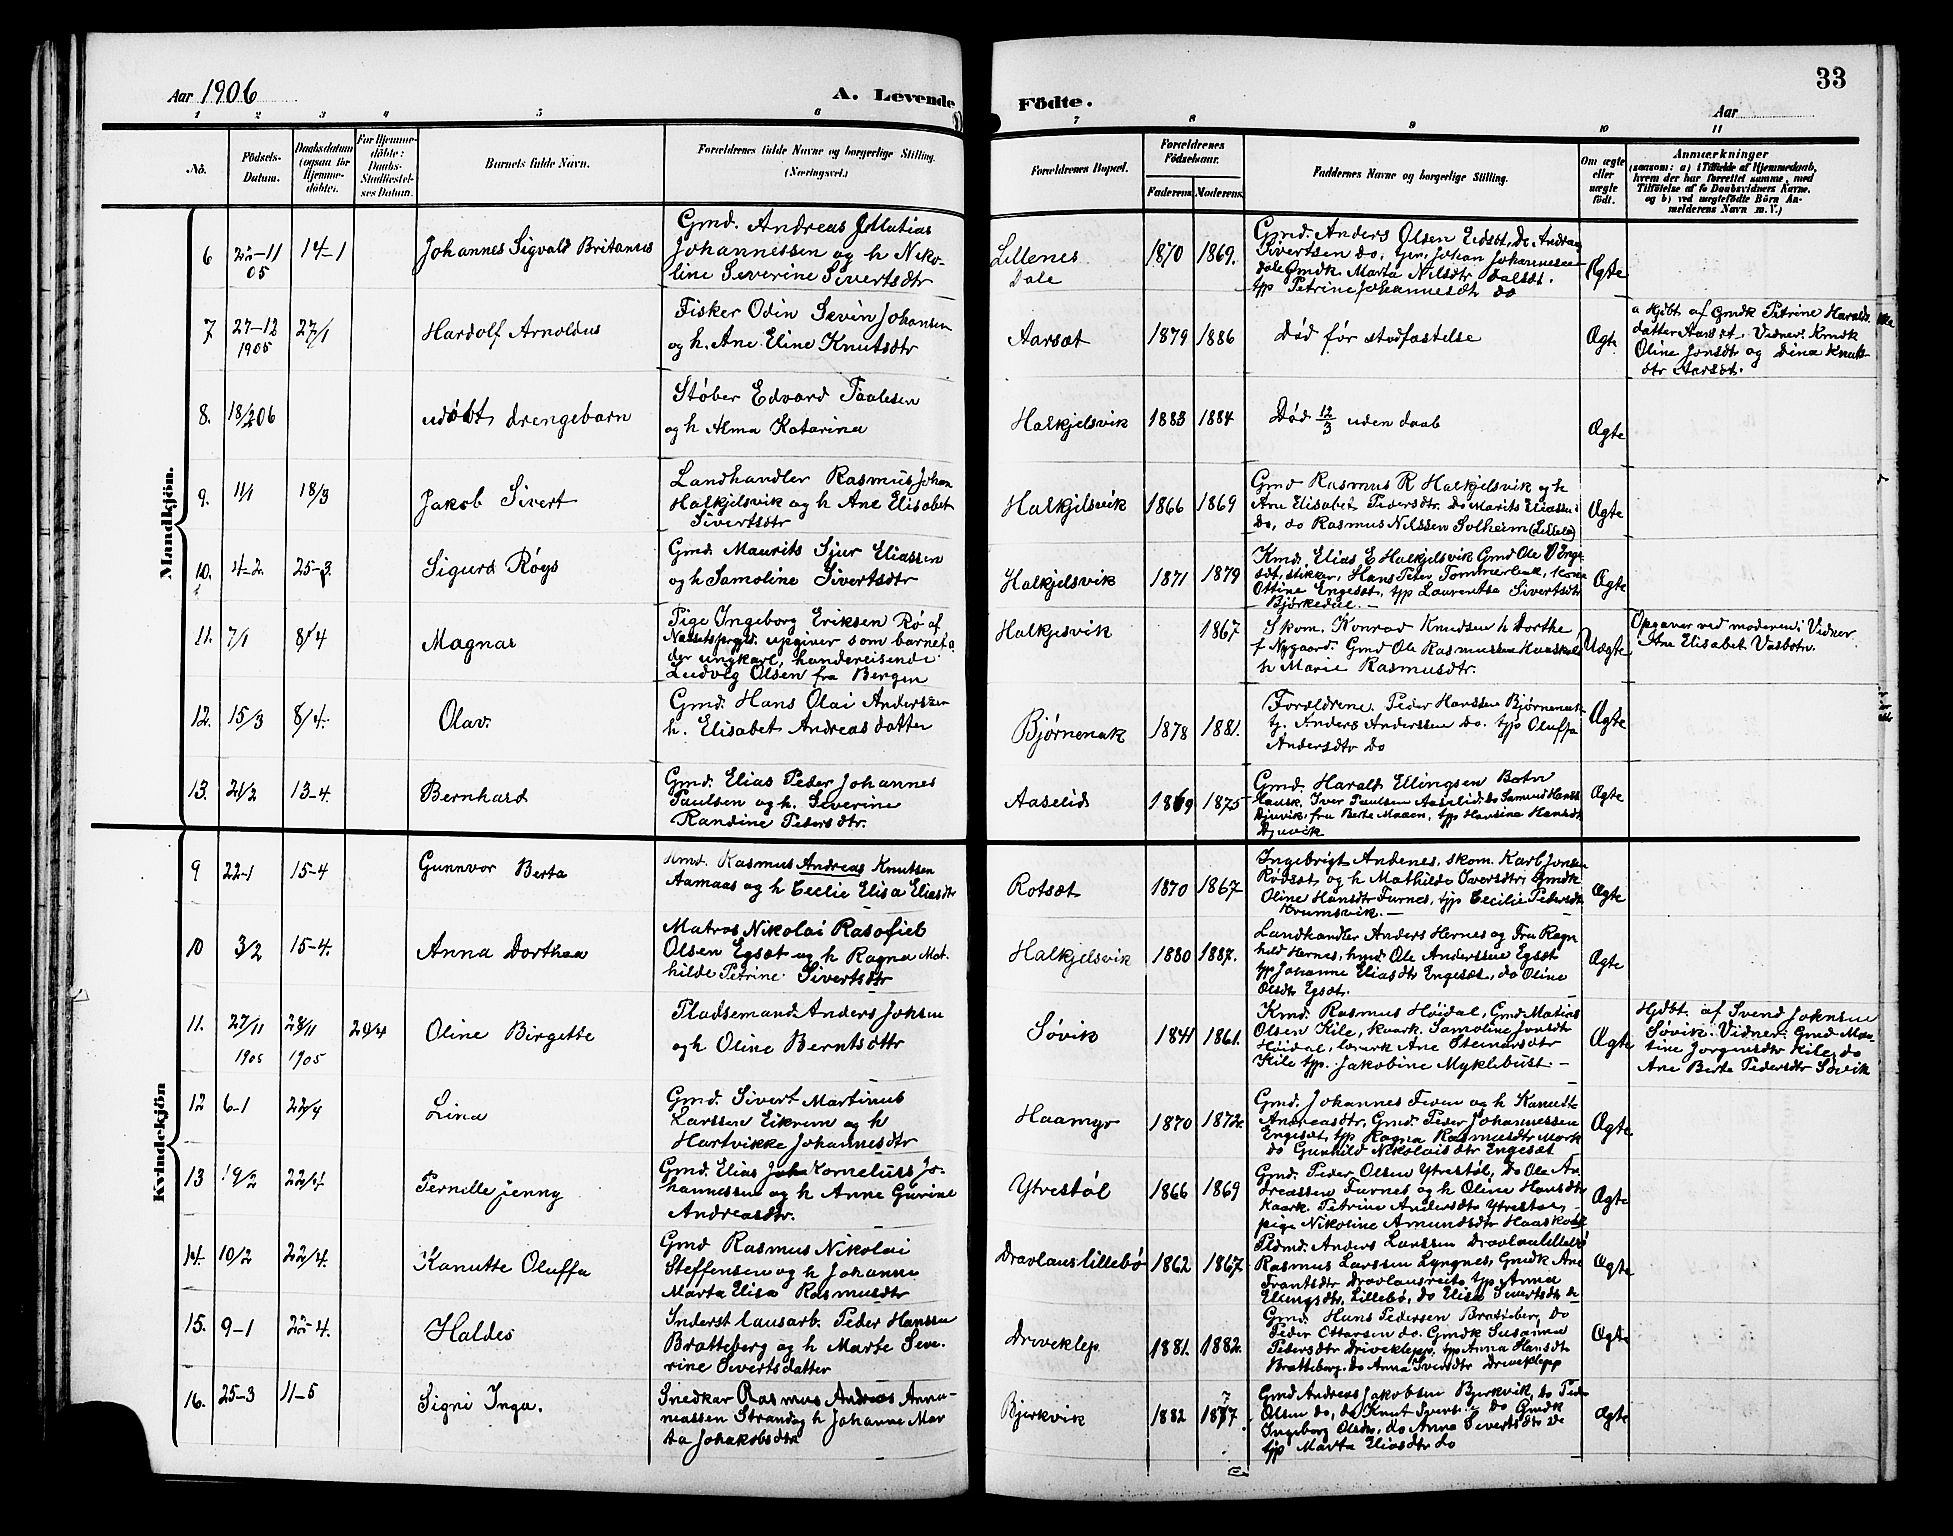 33
Aar 1906
A. Levende
Födte.
Aar
1 2 3 4 5 6 7 8 9 10 11
No.
Födsels-
Datum.
Daabsdatum
(ogsaa for
Hjemme-
döbte).
For Hjemme-
döbte:
Daabs-
Stadfæstel-
ses Datum.
Barnets fulde Navn.
Forældrenes fulde Navne og borgerlige Stilling.
(Næringsvei.)
Forældrenes Bopæl.
Forældrenes
Födselsaar.
Faderens.
Moderens.
Faddernes Navne og borgerlige Stilling.
Om ægte
eller
uægte
födt.
Anmærkninger
(saasom: a) i Tilfælde af Hjemmedaab,
hvem der har forrettet samme, med
Tilföielse af to Daabsvidners Navne.
og b) ved uægtefödte Börn An-
melderens Navn m. V.)
Mandkjön.
6
11
05
14-1
Johannes Sigvald Britanus
Gmd. Andreas Matias
Johannessen og h Niko-
line Severine Sivertsdtr
Lillenes
Dale
1870
1869.
Gmd. Anders Olsen Eidset, Do Andreas
Sivertsen do, Johan Johannesen
Dale Gmdk. Marta Nilsdtr Dalset.
tjp Petrine Johannesdt do
Ægte
7
27-12
1905
27/1
Hardolf Arnoldus
Fisker Odin Sevrin Johansen
og h. Ane Eline Knutsdtr
Aarsæt
1879
1886
Død før stadfæstelse
Ægte
a Hjdbt af Gmdk Petrine Haralds
datter Aarsæt. Vidner: Kmdk
Oline Jonsdtr og Dina Knuts-
dtr Aarsæt.
8.
18/2 06
udøbt drengebarn
Støber Edvard Paulsen
og h Alma Katarina
Halkjelsvik
1883
1884
Død 12/3 uden daab
Ægte
9.
1/1
18/3
Jakob Sivert
Landhandler Rasmus Johan
Halkjelsvik og h Ane Elisabet
Sivertsdtr
Halkjelsvik
1866
1869
Gmd Rasmus R Halkjelsvik og h
Ane Elisabet Pedersdtr. Do Marits Eliassen
Do, do Rasmus Nilssen Solheim
Ægte
10.
4-2
25-3
Sigurd Røys
Gmd. Maurits Sjur Eliassen
og h Samoline Sivertsdtr
Halkjelsvik
1871
1879
Kmd. Elias E Halkjelsvik Gmd Ole
Hans Peter Tommerbak,
Ottine Engesæt, tjp Laurentse Sivertsdtr
Bjørkedal. -
Ægte
11.
7/1
8/4
Magnar
Pige Ingeborg Eriksen Rø af
opgiver som barnefa
der ungkarl, handereisende
Ludvig Olsen fra Bergen
Halkjelsvik
1867
Skom. Konrad Knudsen h Dorthe
f Nygaard. Gmd Ole Rasmussen
h Marie Rasmusdtr.
Uægte
Opgaver ved moderen; Vidner
Ane Elisabet Vasbotn.
12.
15/3
8/4.
Olav.
Gmd. Hans Olai Anderssen
h. Elisabet Andreasdatter
Bjørnenak
1878
1881.
Forældrene. Peder Hanssen Bjørnenak
tj. Anders Anderssen do. tjp Oluffa
Andersdtr do
Ægte
13.
21/2
13-4.
Bernhard
Gmd. Elias Peder Johannes
Paulsen og h. Severine
Randine Pedersdtr.
Aaselid
1869
1875
Gmd. Harald Ellingsen Botn
Iver Paulsen Aaselid. Do Samund Hanss
Djuvik, fru Berte Maaen, tjp Hansine Hansdt
Djuvik
Ægte
Kvindekjön
9
22-1
15-4
Gunnvor Berta
Kmd. Rasmus Andreas Knutsen
Aamaas og h Cecilie Elisa Eliasdtr
Rotsæt
1870
1867
Ingebrigt Andenes, skom. Karl Jonsen
Rødsæt og h Mathilde Iversdtr, Gmdk
Oline Hansdtr Furnes, tjp Cecilie Pedersdt
Krumsvik. -
Ægte
10
3/2
15-4.
Anna Dorthea
Matros Nikolai Rasofiel
Olsen Egsæt og h Ragna Mat-
hilde Petrine Sivertsdtr
Halkjelsvik
1880
1887.
Landhandler Anders Hernes og Fru Ragn
hild Hernes, Ole Anderssen Egsæt
tjp Johanne Eliasdtr Engesæt, do Oline
Olsdtr Egsæt.
Ægte
11.
27/11
1905
28/11
1905
20/4
Oline Birgitte
Pladsemand Anders Johsen
og h Oline Berntsdttr
Søvik
1841
1861.
Kmd. Rasmus Høidal, Gmd. Matias
Olsen Kile, kaark. Samoline Jonsdtr
Høidal, Ane Steinarsdtr
Kile tjp. Jakobine Myklebust -
Ægte
Hjdbt. af Svend Johnsen
Søvik: Vidner: Gmd. Mar-
tine Jørgensdtr Kile, do
Ane Berte Pedersdtr Søvik
12
6-1
22/4
Lina
Gmd. Sivert Martinus
Larssen Eikrem og h
Hartvikke Johannesdtr
Haamyr
1870
1872.
Gmd. Johannes Fiven og h Kanutte
Andreasdtr, Gmd. Peder Johannessen
Engesæt, tjp Ragna Rasmusdtr Mork
do Gunhild Nikolaisdtr Engesæt
Ægte
13
19/2
22/4
Pernille jenny
Gmd. Elias Joh Kornelius Jo-
hannessen og h Anne Gurine
Andreasdtr.
Ytrestøl
1866
1869
Gmd. Peder Olsen Ytrestøl, do Ole An
dreassen Furnes og h Oline Hansdtr
Kaark. Petrine Andersdtr Ytrestøl,
pige Nikoline Amundsdtr
Ægte
14.
10/2
22/4.
Kanutte Oluffa
Gmd Rasmus Nikolai
Steffensen og h Johanne
Marta Elisa Rasmusdtr
Dravlaus Lillebø
1862
1867
Pldmd. Anders Larssen Dravlaus Lillebø
Rasmus Larssen Lyngnes, Gmdk Ane
Frantsdtr Dravlausreite, tjp Anna
Ellingsdtr, Lillebø, do Elisa Sivertsdtr
Ægte
15.
9-1
22-4.
Haldes
Inderst lausarb. Peder Hanssen
Bratteberg og h Marte Seve-
rine Sivertsdatter
Driveklep
1881.
1882.
Gmd. Hans Pedersen Bratteberg, Do
Peder Ottarsen do. Gmdk Susanna
Pedersdtr Driveklepp, tjp Anna Hansdt
Bratteberg. do Anna Svendtr Driveklepp
Ægte
16.
25-3
11-5
Signi Inga.
Snedkar Rasmus Andreas Anna-
niassen Strand og h Johanne Mar
ta Johakobsdtr
Bjerkvik
1882
1877.
Gmd Andreas Jakobsen Bjerkvik, do Ped
Olsen do, do Knut Sverts do Gmdk
Ingeborg Olsdtr, do Anna Sivertsdtr do
tjp Marta Eliasdtr do
Ægte